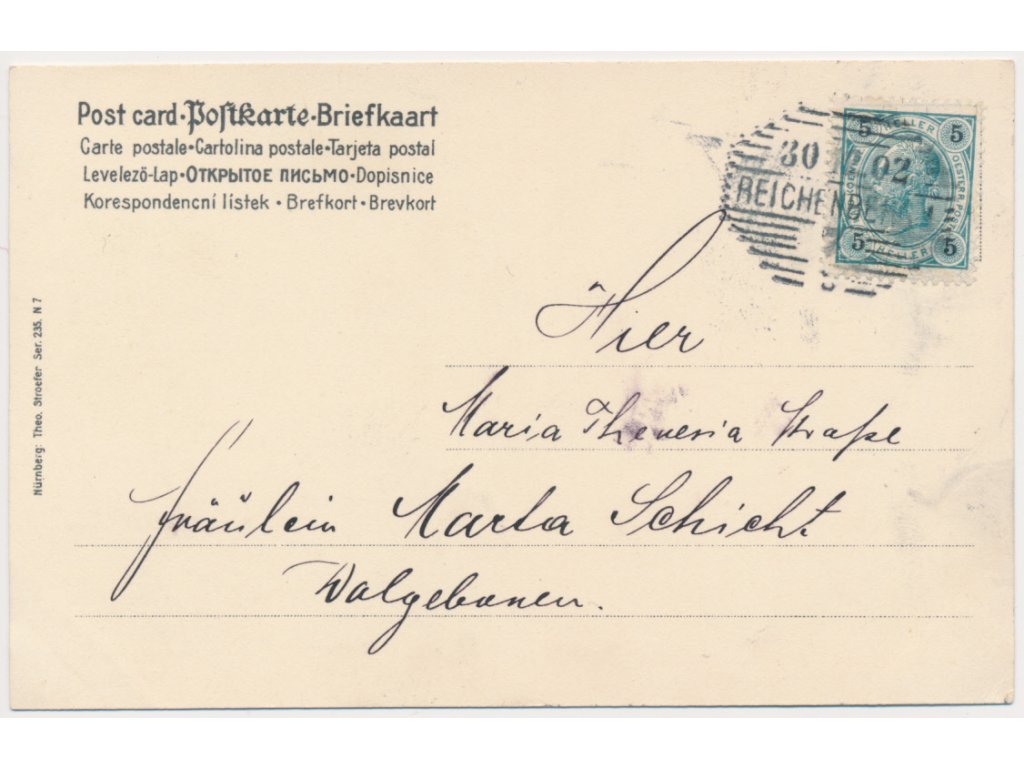 Post card·Postkarte·Briefkaart
Carte postale·Cartolina postale·Tarjeta postal
Levelező-Lap·ОТКРЫТОЕ ПИСЬМО·Dopisnice
Korespondencní lístek · Brefkort · Brevkort
30 02
5 HELLER 5
OESTER·POST
5 HELLER 5
Hier
Maria Theresia Straße
Fräulein Marta Schicht
Nürnberg: Theo. Stroefer Ser. 235. N 7